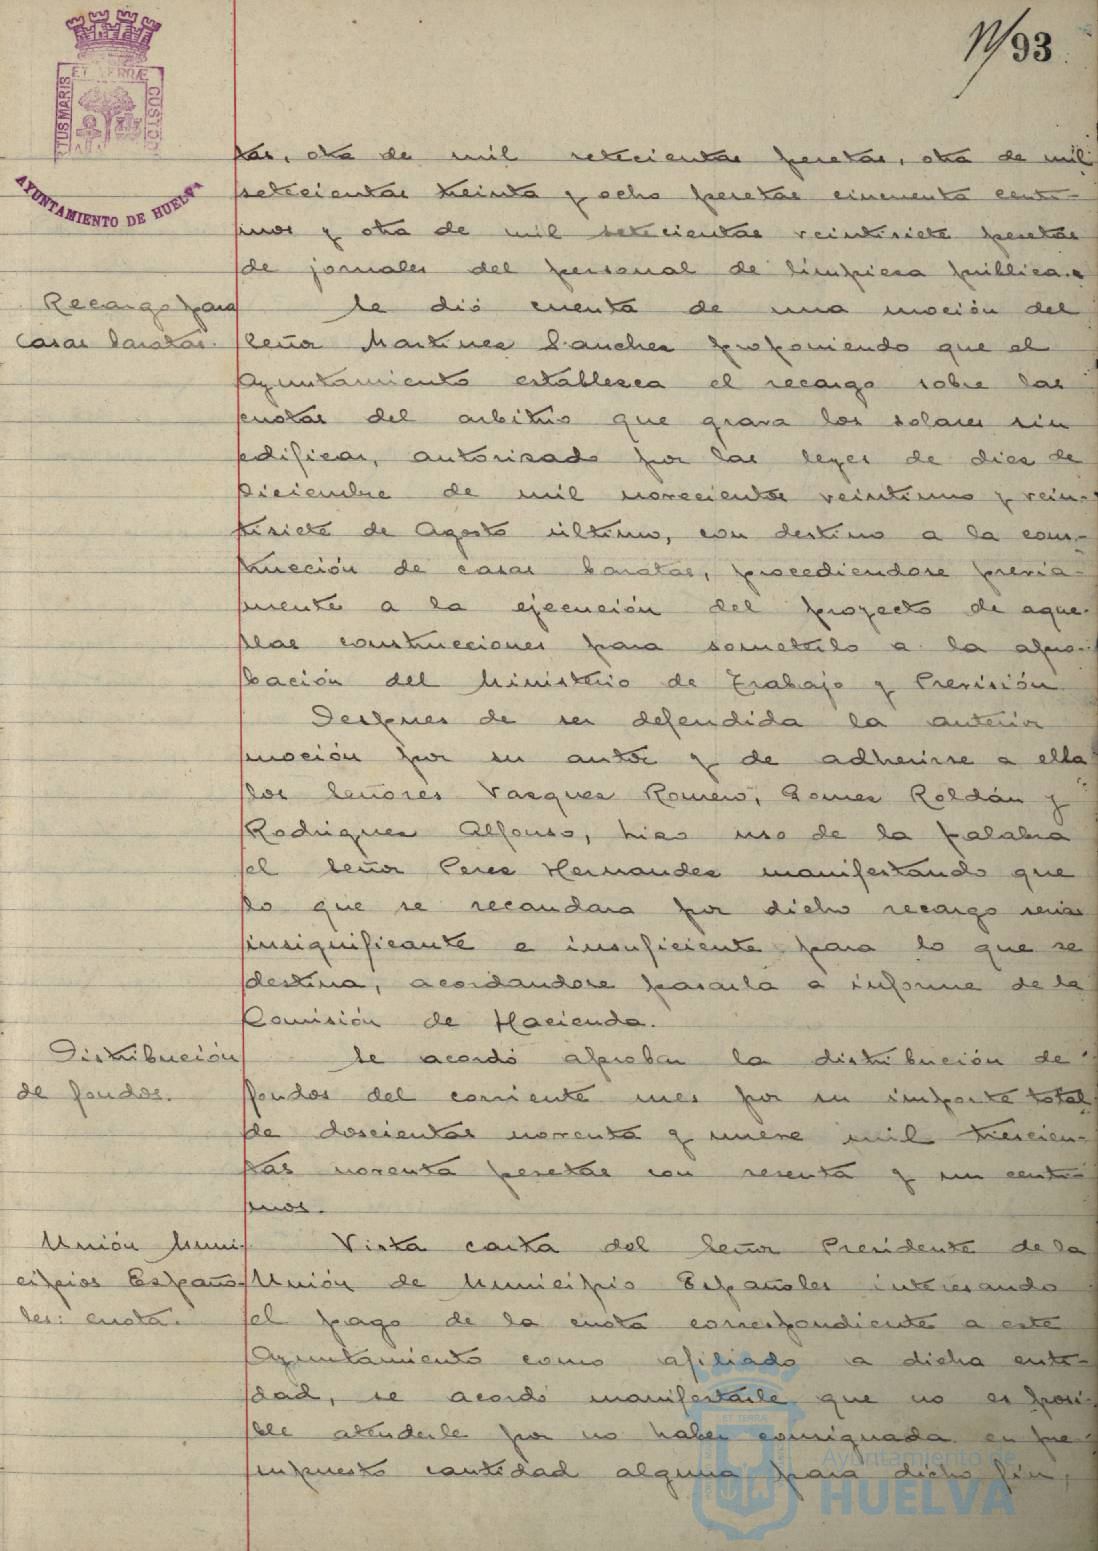 N/93
ET TERRÆ
TUS MARIS
CUSTOD
AYUNTAMIENTO DE HUELVA
tas, otra de mil setecientas pesetas, otra de mil
setecientas treinta y ocho pesetas cincuenta centi-
mos y otra de mil setecientas veintisiete pesetas
de jornales del personal de limpieza pública.
Recargo para
casas baratas.
Se dió cuenta de una moción del
Señor Martinez Sanchez proponiendo que el
Ayuntamiento establezca el recargo sobre las
cuotas del arbitrio que grava los solares sin
edificar, autorizado por las leyes de diez de
Diciembre de mil novecientos veintiuno y vein-
tisiete de Agosto último, con destino a la cons-
trucción de casas baratas, procediendose previa-
mente a la ejecución del proyecto de aque-
llas construcciones para someterlo a la apro-
bación del Ministerio de Trabajo y Previsión
Despues de ser defendida la anterior
moción por su autor y de adherirse a ella
los Señores Vazquez Romero, Gomez Roldán y
Rodriguez Alfonso, hizo uso de la palabra
el Señor Perez Hernandez manifestando que
lo que se recaudara por dicho recargo seria
insignificante e insuficiente para lo que se
destina, acordandose pasarla a informe de la
Comisión de Hacienda.
Distribución
de fondos.
Se acordó aprobar la distribución de
fondos del corriente mes por su importe total
de doscientas noventa y nueve mil trescien-
tas noventa pesetas con sesenta y un centi-
mos.
Unión Muni-
cipios Españo-
les: cuota.
Vista carta del Señor Presidente de la
Unión de Municipio Españoles interesando
el pago de la cuota correspondiente a este
Ayuntamiento como afiliado a dicha enti-
dad, se acordó manifestarle que no es posi-
ble atenderle por no haber consignada en pre-
supuesto cantidad alguna para dicho fin,
ET TERRA
Ayuntamiento de
HUELVA